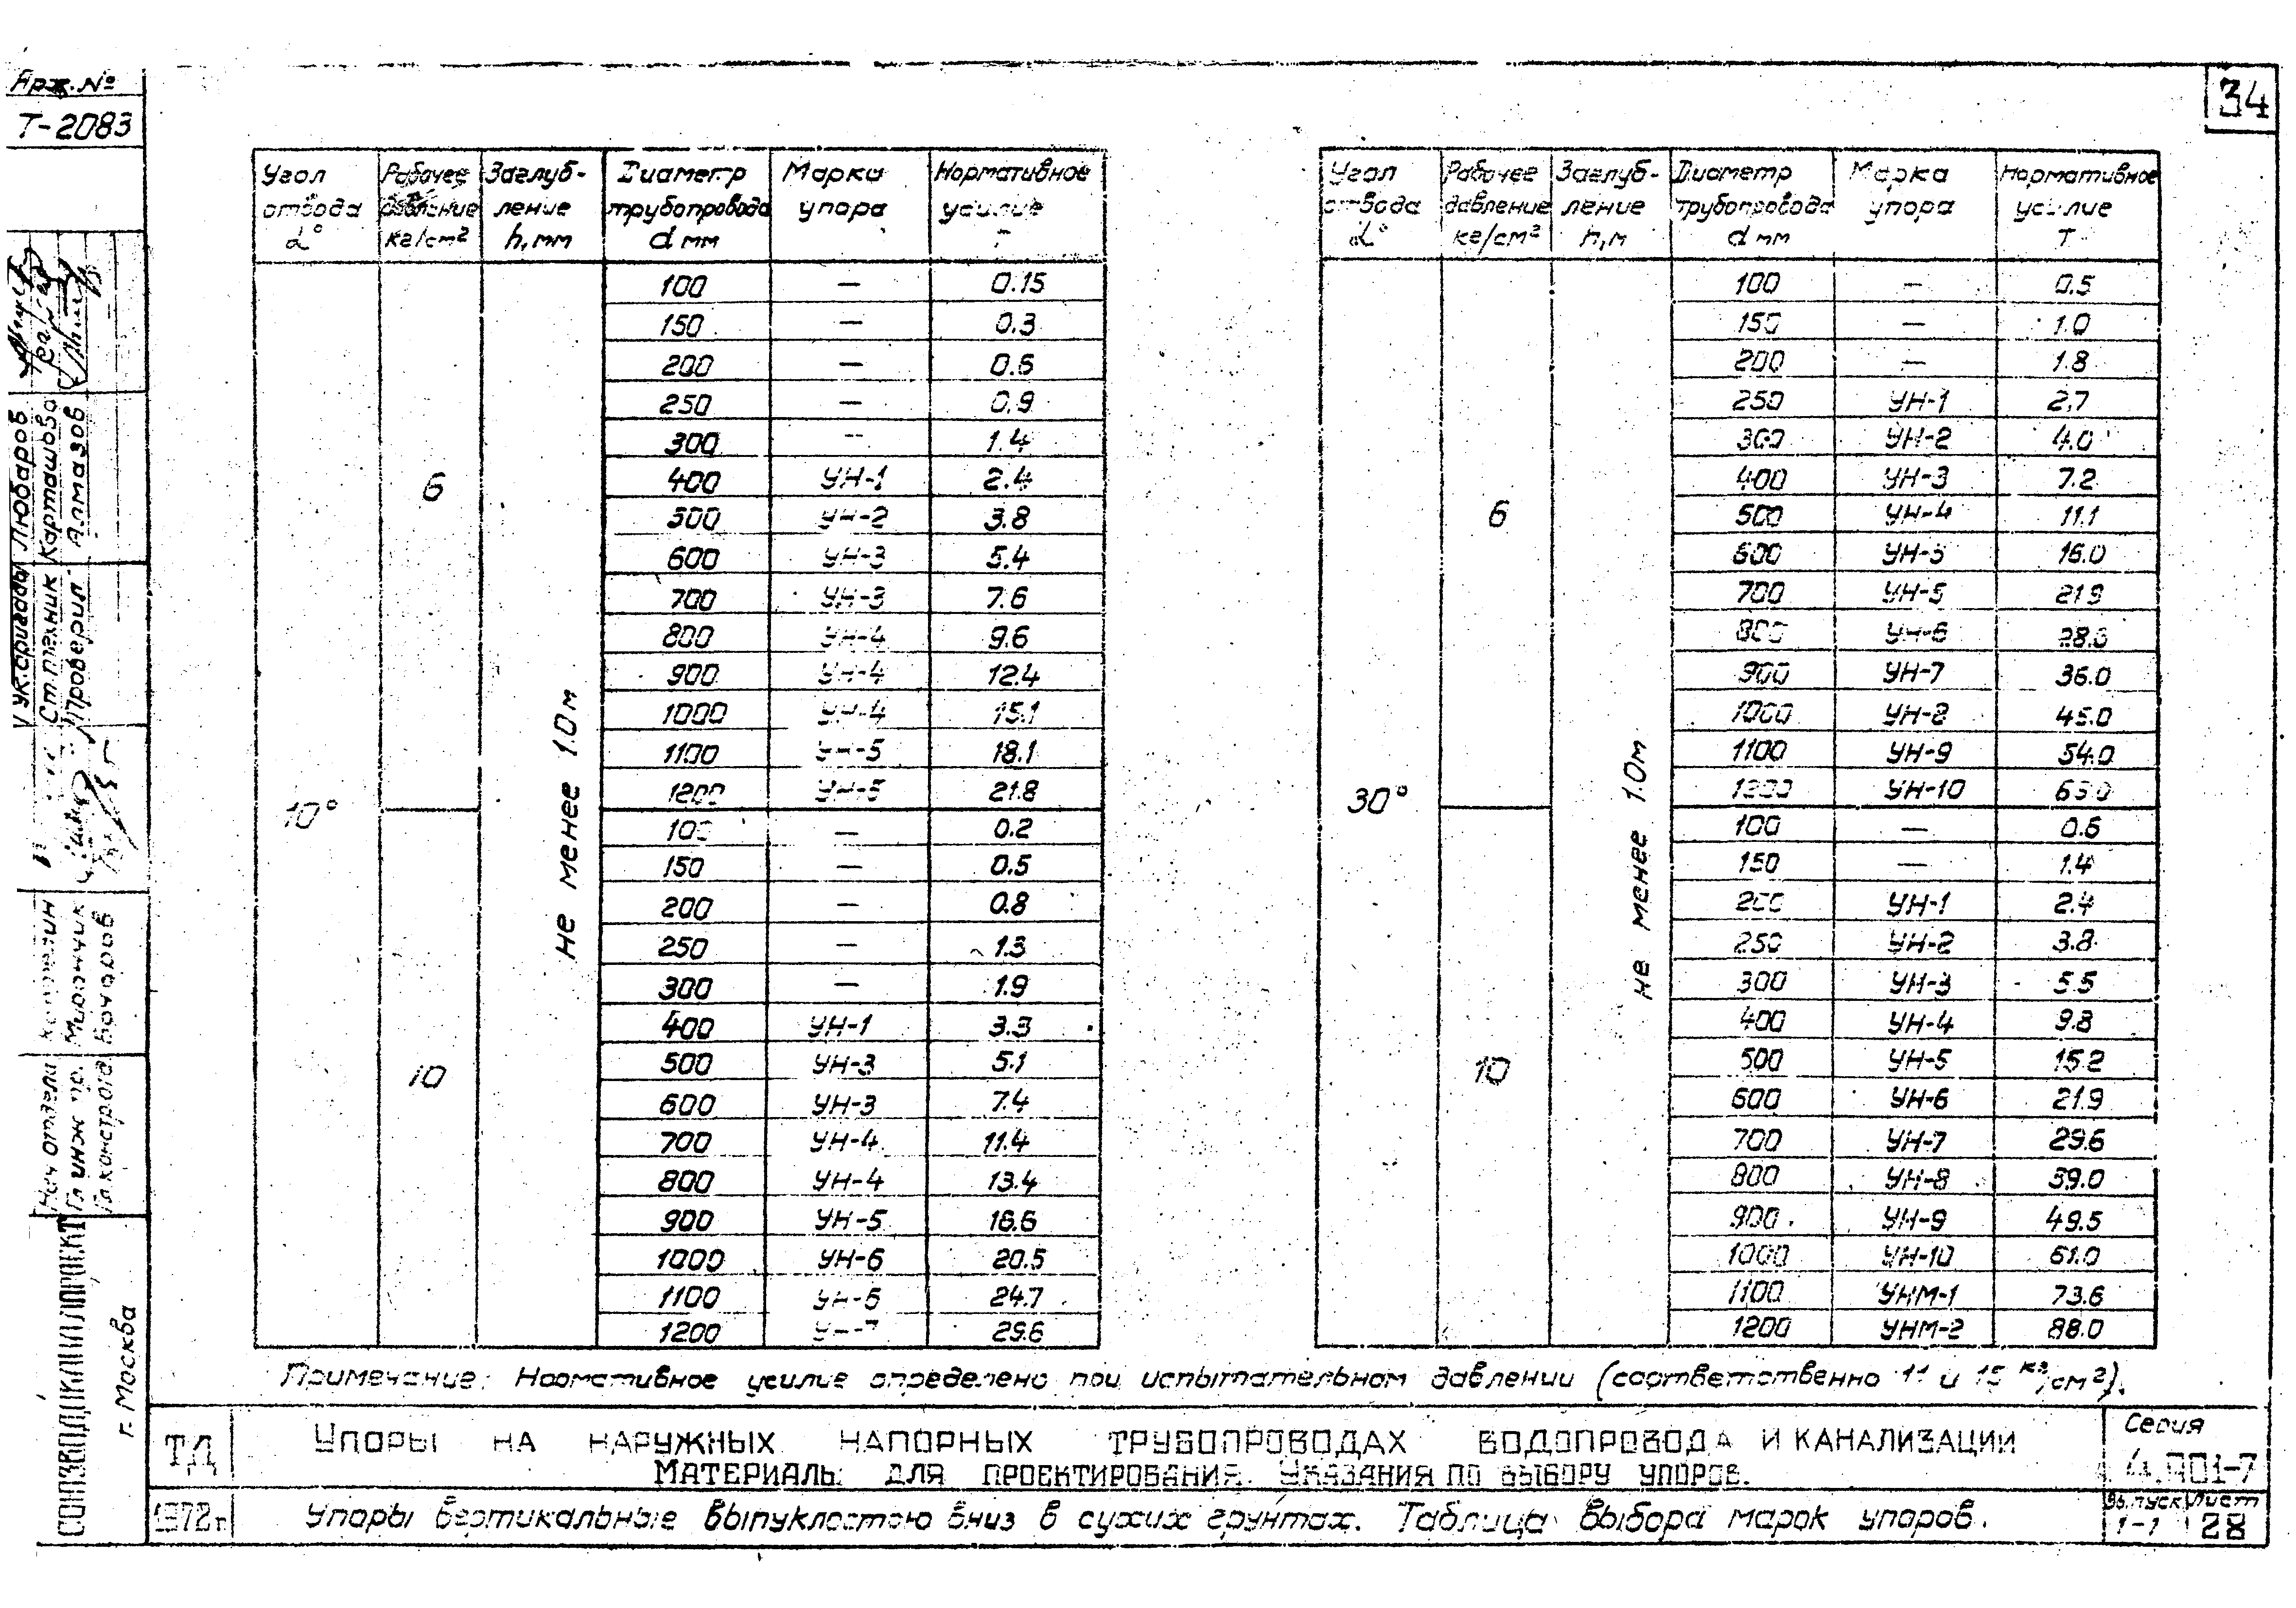 Арж. №
Т-2083
34
Угол отвода α° | Рабочее давление кг/см² | Заглубление h, мм | Диаметр трубопровода d мм | Марка упора | Нормативное усилие Т
10° | 6 | не менее 1.0м | 100 | — | 0.15
150 | — | 0.3
200 | — | 0.6
250 | — | 0.9
300 | — | 1.4
400 | УН-1 | 2.4
500 | УН-2 | 3.8
600 | УН-3 | 5.4
700 | УН-3 | 7.6
800 | УН-4 | 9.6
900 | УН-4 | 12.4
1000 | УН-4 | 15.1
1100 | УН-5 | 18.1
1200 | УН-5 | 21.8
10 | 100 | — | 0.2
150 | — | 0.5
200 | — | 0.8
250 | — | 1.3
300 | — | 1.9
400 | УН-1 | 3.3
500 | УН-3 | 5.1
600 | УН-3 | 7.4
700 | УН-4 | 11.4
800 | УН-4 | 13.4
900 | УН-5 | 16.6
1000 | УН-6 | 20.5
1100 | УН-6 | 24.7
1200 | УН-7 | 29.6
Угол отвода α° | Рабочее давление кг/см² | Заглубление h, м | Диаметр трубопровода d мм | Марка упора | Нормативное усилие Т
30° | 6 | не менее 1.0м | 100 | — | 0.5
150 | — | 1.0
200 | — | 1.8
250 | УН-1 | 2,7
300 | УН-2 | 4.0
400 | УН-3 | 7.2
500 | УН-4 | 11.1
600 | УН-5 | 16.0
700 | УН-5 | 21.9
800 | УН-6 | 28.6
900 | УН-7 | 36.0
1000 | УН-8 | 45.0
1100 | УН-9 | 54.0
1200 | УН-10 | 65.0
10 | 100 | — | 0.6
150 | — | 1.4
200 | УН-1 | 2.4
250 | УН-2 | 3.8
300 | УН-3 | 5.5
400 | УН-4 | 9.8
500 | УН-5 | 15.2
600 | УН-6 | 21.9
700 | УН-7 | 29.6
800 | УН-8 | 39.0
900 | УН-9 | 49.5
1000 | УН-10 | 61.0
1100 | УНМ-1 | 73.6
1200 | УНМ-2 | 88.0
Примечание: Нормативное усилие определено при испытательном давлении (соответственно 11 и 15 кг/см²).
ТД
1972 г.
Упоры на наружных напорных трубопроводах водопровода и канализации
Материалы для проектирования. Указания по выбору упоров.
Упоры вертикальные выпуклостью вниз в сухих грунтах. Таблица выбора марок упоров.
Серия
4.901-7
Выпуск Лист
1-1 28
Рук. бригады Любаров
Ст. техник Карташова
Проверил Алмазов
Нач отдела
Гл инж пр. Мирончик
Гл. констр отд Бочаров
СОЮЗВОДОКАНАЛПРОЕКТ
г. Москва